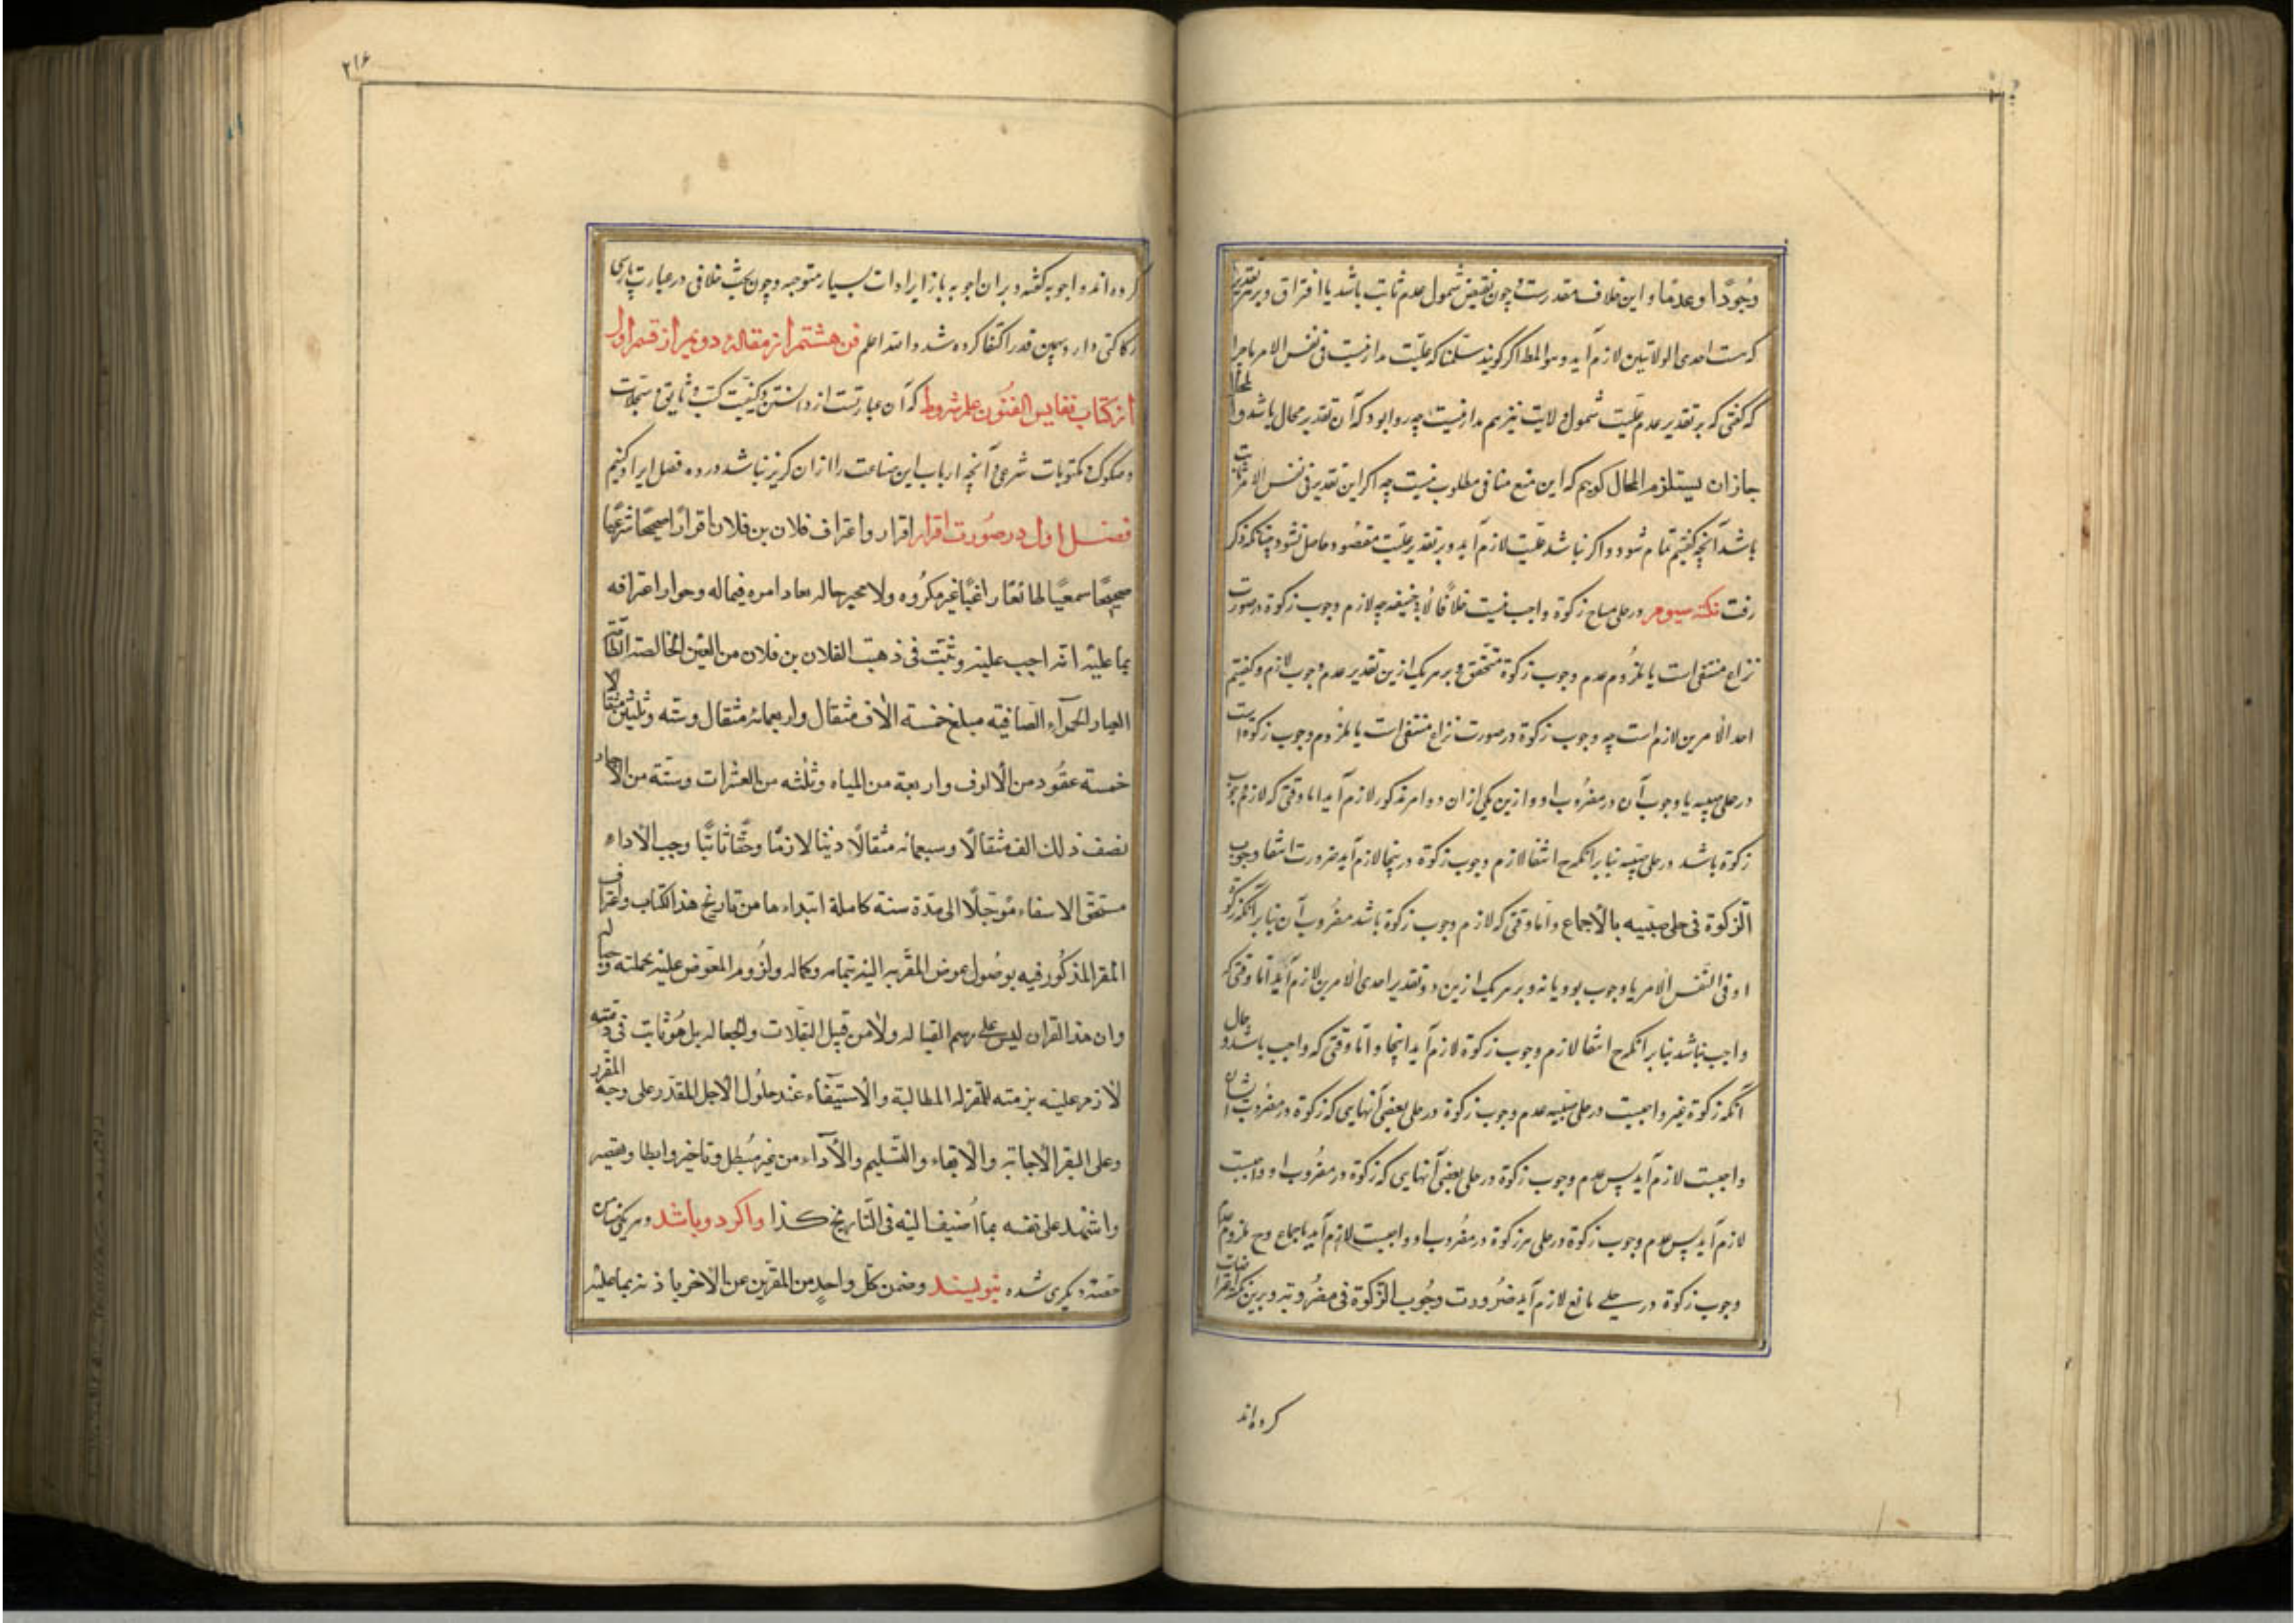 وجودًا و عدمًا و این خلاف مقدرست و چون نقیض شمول عدم ثابت باشد یا افتراق و بر تقدیر
که هست احدی الولایتین لازم آید و هو المط اگر گویند سلمنا که علیت مدار نیست فی نفس الامر ماجرا
که گفتی که بر تقدیر عدم علیت شمول ولایت نیز هم مدار نیست چه روا بود که آن تقدیر محال باشد و المحال
جاز ان یستلزم المحال گویم که این منع منافی مطلوب نیست چه اگر این تقدیر فی نفس الامر ثابت
باشد آنچه گفتیم تمام شود و اگر نباشد علیت لازم آید و بر تقدیر علیت مقصود حاصل شود چنانکه ذکر
رفت نکته سیوم در حلی مباح زکوة واجب نیست خلافًا لابی حنیفه چه لازم وجوب زکوة در صورت
نزاع منتفی است یا ملزوم عدم وجوب زکوة متحقق و بر هر یک ازین تقدیر عدم وجوب لازم و گفتیم
احد الامرین لازم است چه وجوب زکوة در صورت نزاع منتفی است یا ملزوم وجوب زکوة است
در حلی صبیه یا وجوب آن در مضروب او و ازین یکی ازان دو امر مذکور لازم آید اما وقتی که لازم وجوب
زکوة باشد در حلی صبیه بنا بر آنکه ح انتفا لازم وجوب زکوة در اینجا لازم آید ضرورت انتفا وجوب
الزکوة فی حلی صبیه بالاجماع و اما وقتی که لازم وجوب زکوة باشد مضروب آن بنا بر آنکه زکوة
او فی النفس الامر یا وجوب بود یا نه و بر هر یک ازین دو تقدیر احدی الامرین لازم آید اما وقتی که
واجب نباشد بنا بر آنکه ح انتفا لازم وجوب زکوة لازم آید اینجا و اما وقتی که واجب باشد و حال
آنکه زکوة غیر واجبست در حلی صبیه عدم وجوب زکوة در حلی بعضی آنهایی که زکوة در مضروب ایشان
واجبست لازم آید پس عدم وجوب زکوة در حلی بعضی آنهایی که زکوة در مضروب او واجبست
لازم آید پس عدم وجوب زکوة در حلی هر زکوة در مضروب او واجبست لازم آید باجماع و ح ملزوم عدم
وجوب زکوة در حلی مانع لازم آید ضرورت وجوب الزکوة فی مضروبه و برین نکته اعتراضات
کرده‌اند
۲۱۶
کرده‌اند و اجوبه گفته و بران اجوبه باز ایرادات بسیار متوجه و چون بحث خلافی در عبارت پارسی
رکاکتی دارد بهمین قدر اکتفا کرده شد و الله اعلم فن هشتم از مقالهٔ دویم از قسم اول
از کتاب نفایس الفنون علم شروط که آن عبارتست از دانستن کیفیت کتب وثایق و سجلات
و صکوک و مکتوبات شرعی و آنچه ارباب این صناعت را ازان گریز نباشد در ده فصل ایراد کنیم
فصل اول در صورت اقرار اقرار و اعتراف فلان بن فلان اقرارًا صحیحًا شرعیًا
صحیحًا سمعیًا طائعًا راغبًا غیر مکروه ولا مجبر حالـ نفاد امره فیماله وجواز اعترافه
بما علیه انه اجب علیه وثبت فی ذمته لفلان بن فلان من العین الخالصة التامة
العیار الحمراء الصافیه مبلغ خمسة الاف مثقال واربعمائه مثقال وسته وثلثین مثقالا
خمسة عقود من الالوف واربعة من المیاه وثلثه من العشرات وستة من الآحاد
نصف ذلك الف مثقالًا وسبعمائه مثقالًا دینا لازمًا وحقًا ثابتًا وجب الأداء
مستحق الاسفاء مؤجلًا الی مدة سنة کاملة ابتداءها من تاریخ هذا الکتاب واعتراف
المقر المذکور فیه بوصول عوض المقر به الیه بتمامه وکماله ولزوم المعوض علیه بجملته وحباله
وان هذا القران لیس علی رسم القباله ولا من قبیل التقبلات والجعاله بل هو ثابت فی ذمته
لازم علیه بزمته للمقرله المطالبة والاستیفاء عند حلول الاجل المقدر علی وجه المقرر
وعلی المقر الاجابة والایفاء والتسلیم والأداء من غیر مُبطل وتاخیر وابطا وتقصیر
واشهد علی نفسه بما اُضیف الیه فی التاریخ کذا و اگر دو باشد و هر یکی ضامن
حصه دیگری شده بنویسند وضمن کل واحدٍ من المقرین عن الاخر باذنه بما علیه